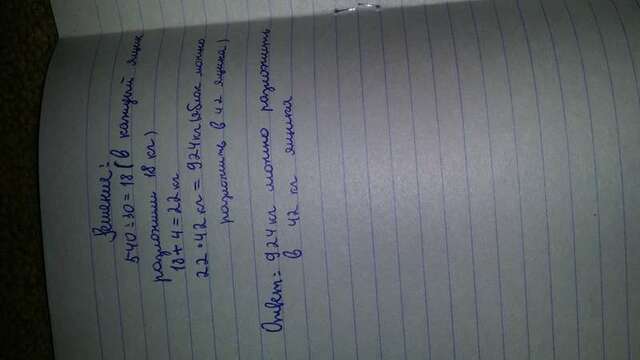 Решение:
540:30=18 (в каждый ящик
разложили 18 кг)
18+4=22 кг
22·42 кг = 924 кг (яблок можно
разложить в 42 ящика)
Ответ: 924 кг можно разложить
в 42 кг ящика